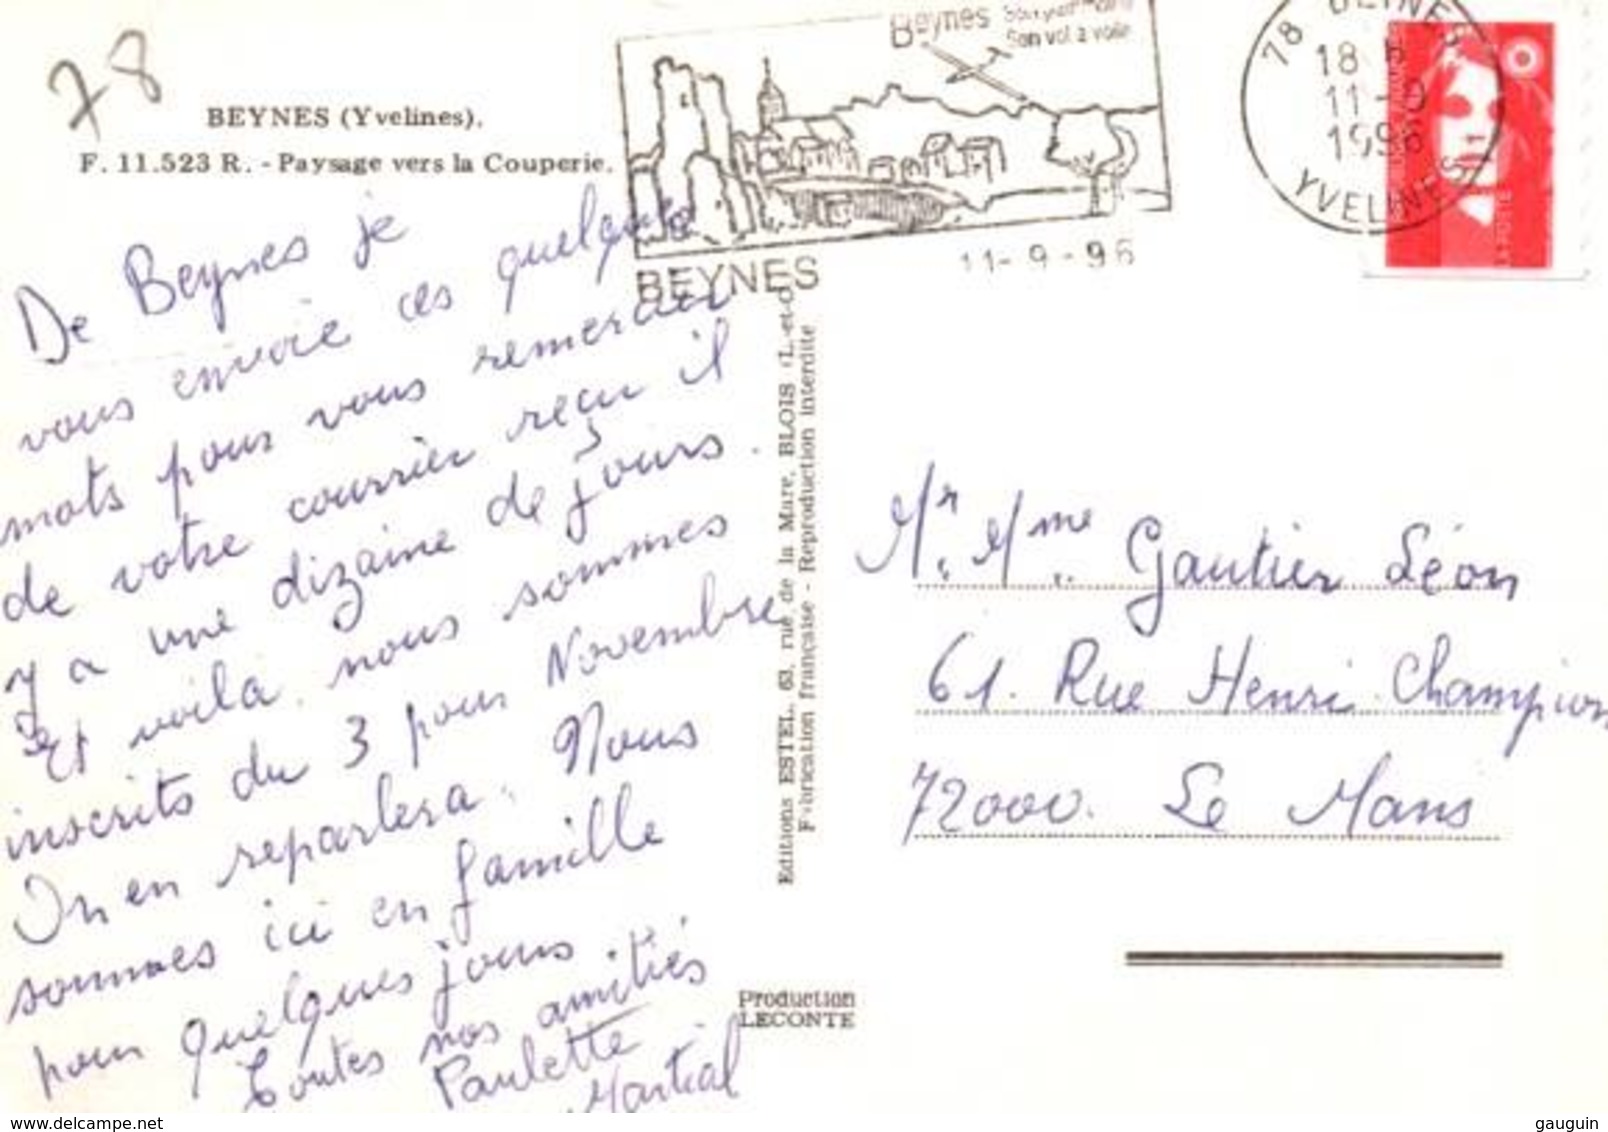 78
BEYNES (Yvelines).
F. 11.523 R. - Paysage vers la Couperie.
Beynes
Son vol à voile
BEYNES
11-9-96
78 BEYNES
18 H
11-9
1996
YVELINES
De Beynes je
vous envoie ces quelques
mots pour vous remercier
de votre courrier reçu il
y a une dizaine de jours.
Et voila nous sommes
inscrits du 3 pour Novembre
On en reparlera. Nous
sommes ici en famille
pour quelques jours.
Toutes nos amitiés
Paulette
Martial
Editions ESTEL, 63, rue de la Mare, BLOIS (L.-et-C)
Fabrication française - Reproduction interdite
Production
LECONTE
Mr. Mme. Gautier Léon
61. Rue Henri Champion
72000. Le Mans
www.delcampe.net
gauguin